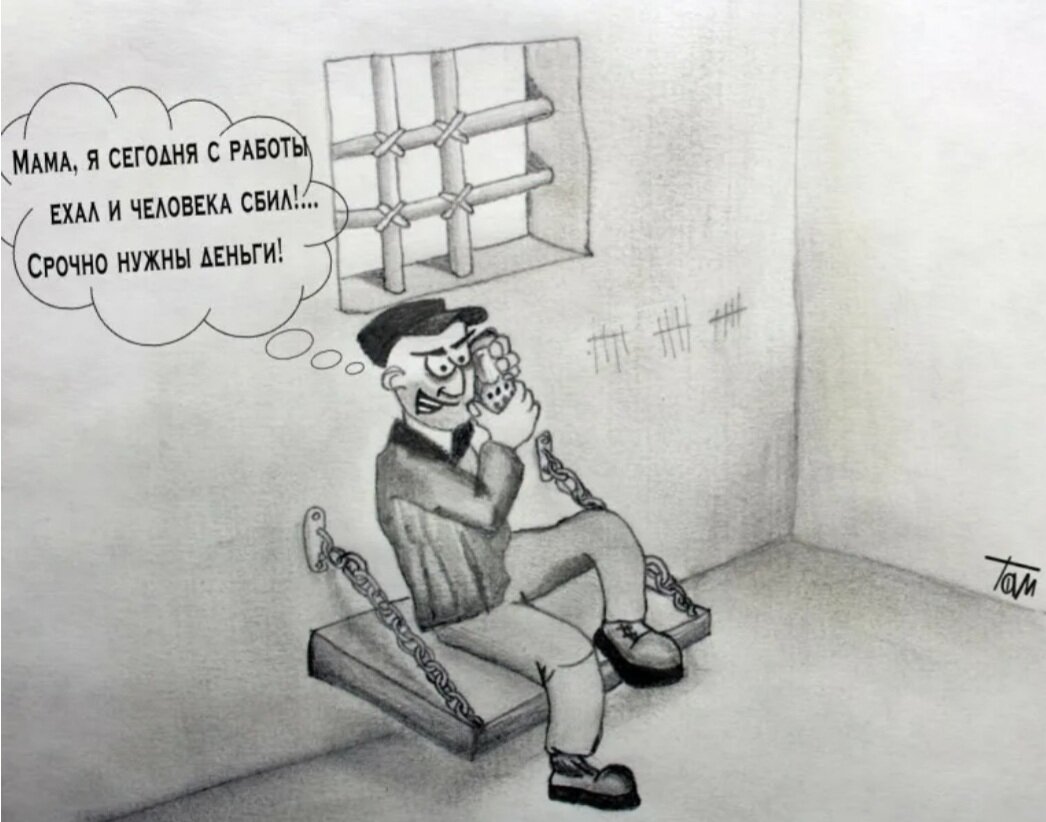 Мама, я сегодня с работы
ехал и человека сбил!...
Срочно нужны деньги!
Том